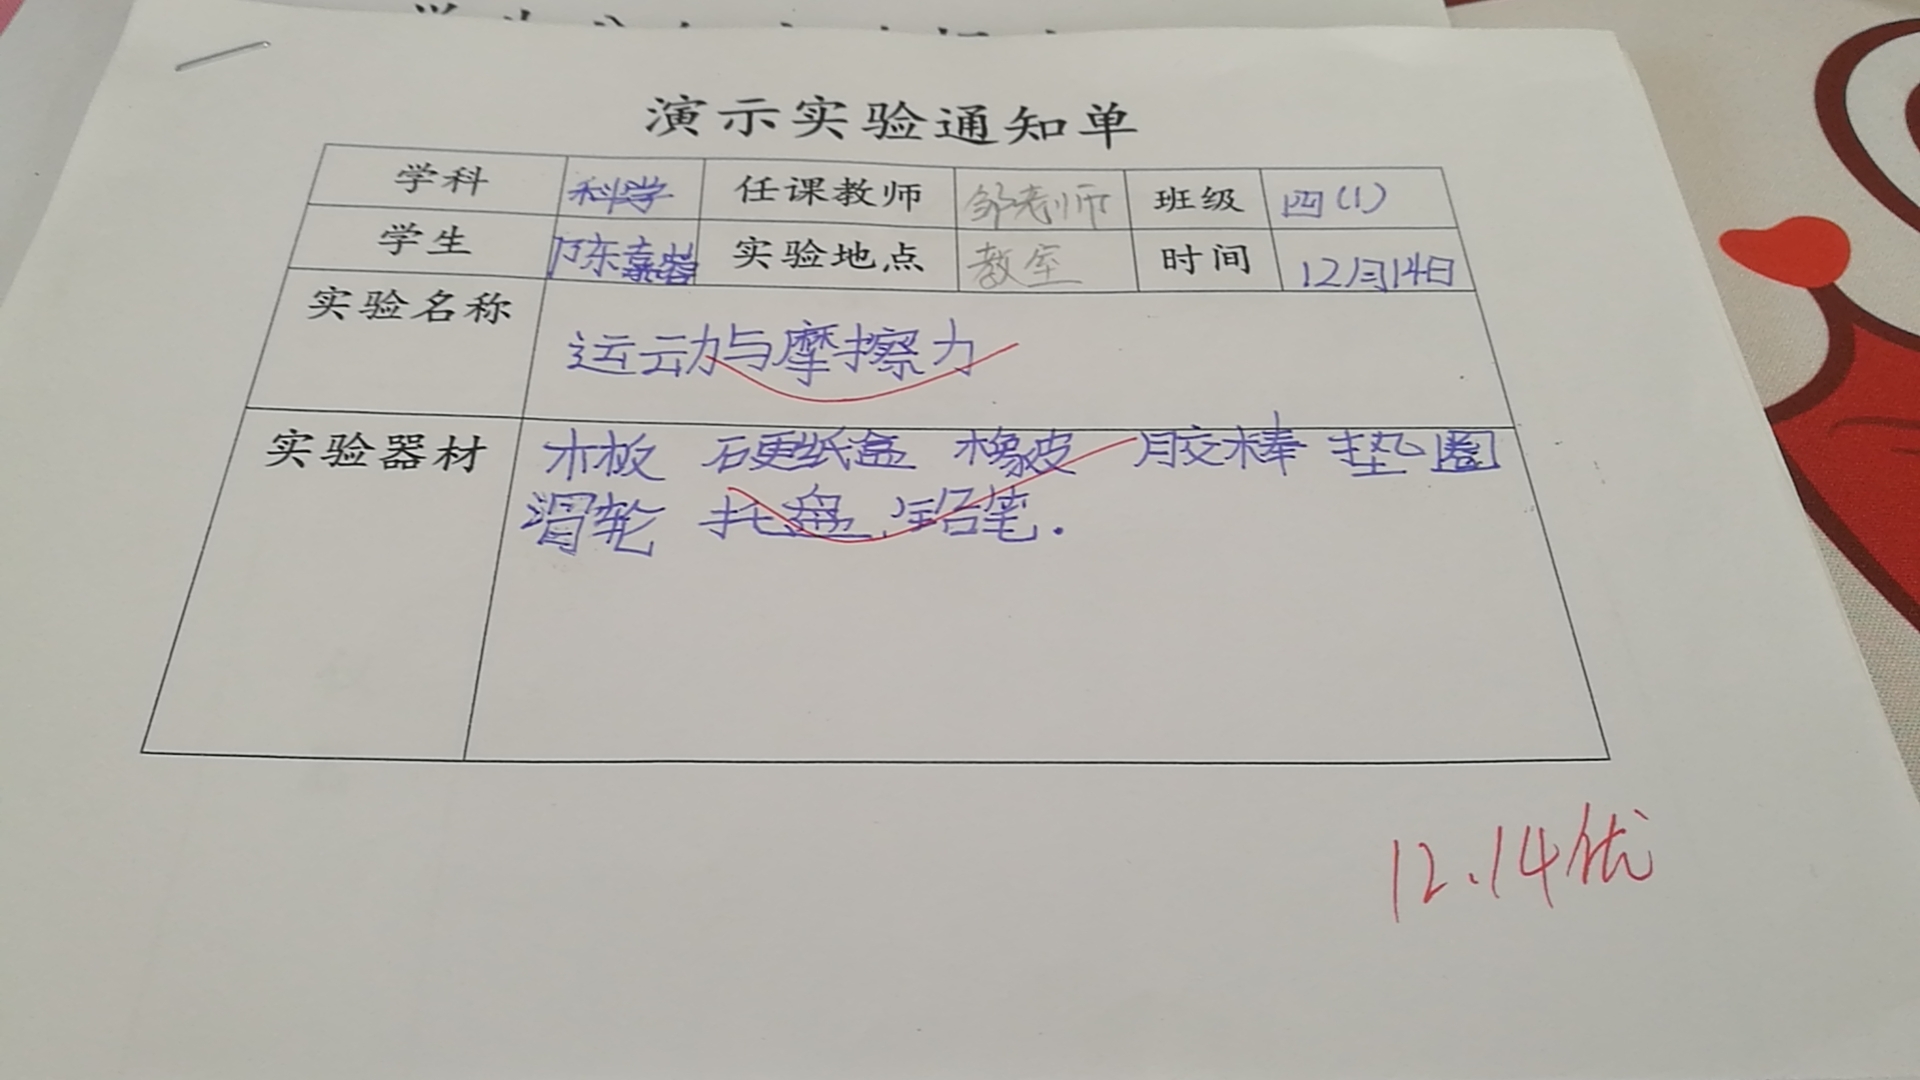 演示实验通知单
学科 科学 任课教师 邹老师 班级 四(1)
学生 陈嘉蓉 实验地点 教室 时间 12月14日
实验名称 运动与摩擦力
实验器材 木板 硬纸盒 橡皮 胶棒 垫圈
滑轮 托盘、铅笔.
12.14优